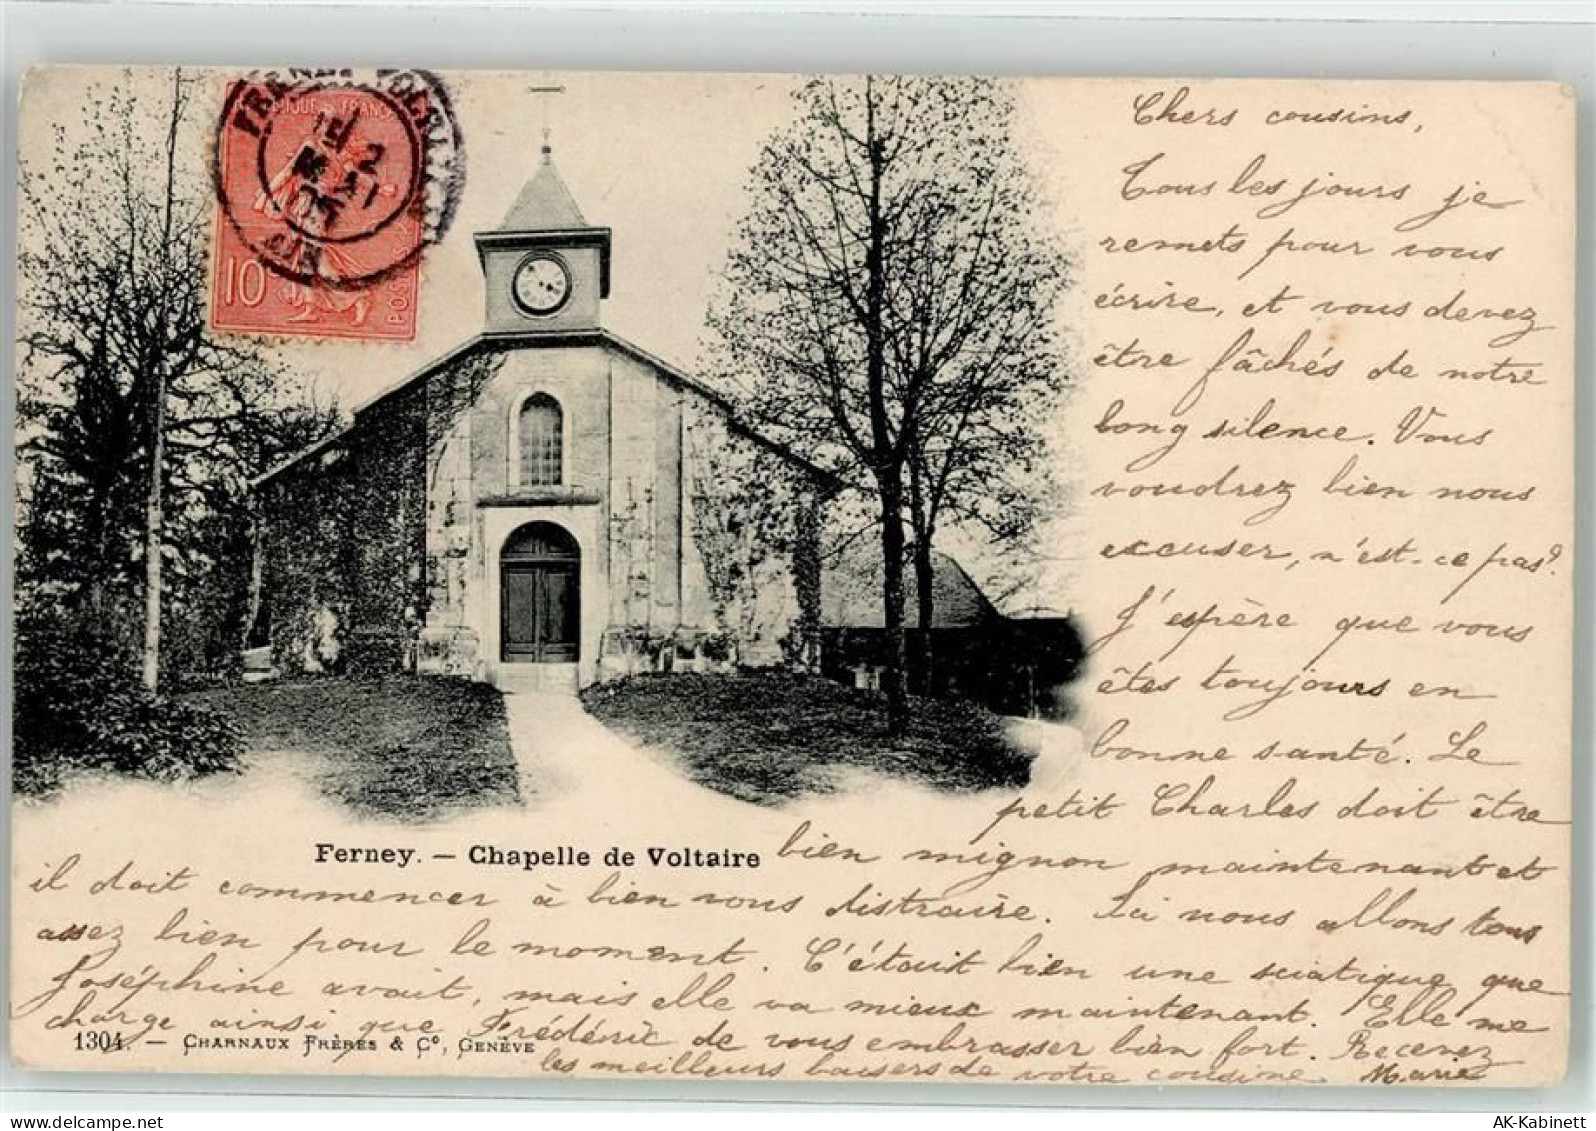 Chers cousins,
Tous les jours je
remets pour vous
écrire, et vous devez
être fâchés de notre
long silence. Vous
voudrez bien nous
excuser, n'est-ce pas?
J'espère que vous
êtes toujours en
bonne santé. Le
petit Charles doit être
bien mignon maintenant et
il doit commencer à bien vous distraire. Ici nous allons tous
assez bien pour le moment. C'était bien une sciatique que
Joséphine avait, mais elle va mieux maintenant. Elle me
charge ainsi que Frédéric de vous embrasser bien fort. Recevez
les meilleurs baisers de votre cousine Marie
Ferney. — Chapelle de Voltaire
1304. — CHARNAUX FRÈRES & Cº, GENÈVE
10
POSTES
AIN
AK-Kabinett